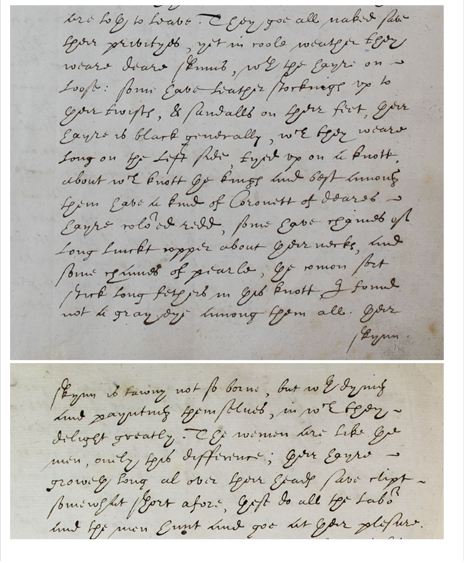 are loth to leave. They goe all naked save
their privityes, yet in coole weather they
weare deare skinns, wth the hayre on
loose: some have leather stockings vp to
their twists, & sandalls on their feet, their
hayre is black generally, wch they weare
long on the left side, tyed vp on a knott,
about wch knott the kings and best among
them have a kind of Coronett of deares
hayre colored redd, some have chaines of
long linckt copper about their necks, and
some chaines of pearle, the comon sort
stick long fethers in this knott, I found
not a gray eye among them all. their
skynn
skynn is tawny not so borne, but wth dying
and paynting themselues, in wch they
delight greatly. The women are like the
men, onely this difference; their hayre
groweth long al over their heads save clipt
somewhat short afore, these do all the labor
and the men hunt and goe at their plesure.